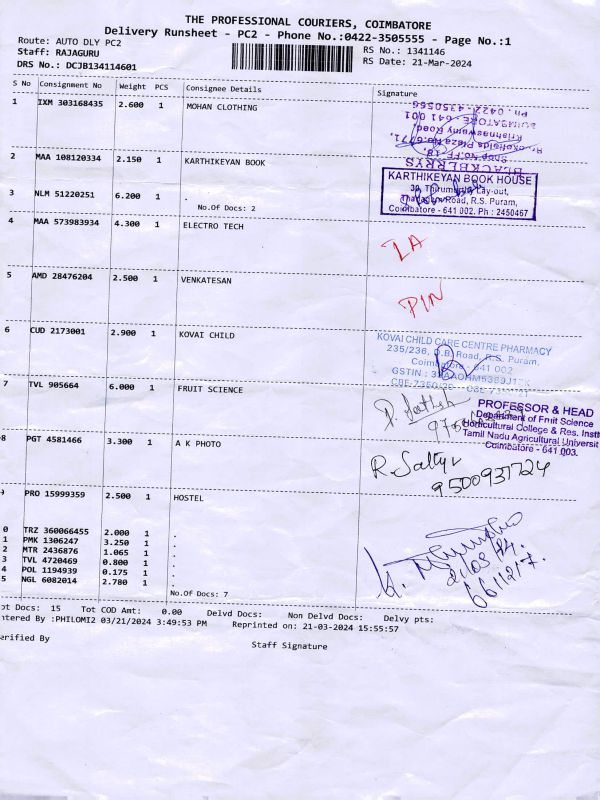 THE PROFESSIONAL COURIERS, COIMBATORE
Delivery Runsheet - PC2 - Phone No.:0422-3505555 - Page No.:1
Route: AUTO DLY PC2
RS No.: 1341146
Staff: RAJAGURU
RS Date: 21-Mar-2024
DRS No.: DCJB134114601
S No Consignment No Weight PCS Consignee Details Signature
1 IXM 303168435 2.600 1 MOHAN CLOTHING
BLACKBERRYS
Krishnaswamy Road,
COIMBATORE - 641 001
Ph : 0422 - 4350566
2 MAA 108120334 2.150 1 KARTHIKEYAN BOOK
KARTHIKEYAN BOOK HOUSE
Lay-out,
Road, R.S. Puram,
Coimbatore - 641 002. Ph : 2450467
3 NLM 51220251 6.200 1 .
No.Of Docs: 2
4 MAA 573983934 4.300 1 ELECTRO TECH
5 AMD 28476204 2.500 1 VENKATESAN
6 CUD 2173001 2.900 1 KOVAI CHILD
KOVAI CHILD CARE CENTRE PHARMACY
235/236, D.B. Road, R.S. Puram,
Coimbatore - 641 002
GSTIN :
7 TVL 905664 6.000 1 FRUIT SCIENCE
PROFESSOR & HEAD
Department of Fruit Science
Horticultural College & Res. Instt
Tamil Nadu Agricultural Universit
Coimbatore - 641 003.
8 PGT 4581466 3.300 1 A K PHOTO
9500931724
PRO 15999359 2.500 1 HOSTEL
0 TRZ 360066455 2.000 1 .
1 PMK 1306247 3.250 1 .
2 MTR 2436876 1.065 1 .
3 TVL 4720469 0.800 1 .
4 POL 1194939 0.175 1 .
5 NGL 6082014 2.780 1 .
21/03/24.
661217.
No.Of Docs: 7
ot Docs: 15 Tot COD Amt: 0.00 Delvd Docs: Non Delvd Docs: Delvy pts:
ntered By :PHILOMI2 03/21/2024 3:49:53 PM Reprinted on: 21-03-2024 15:55:57
erified By
Staff Signature